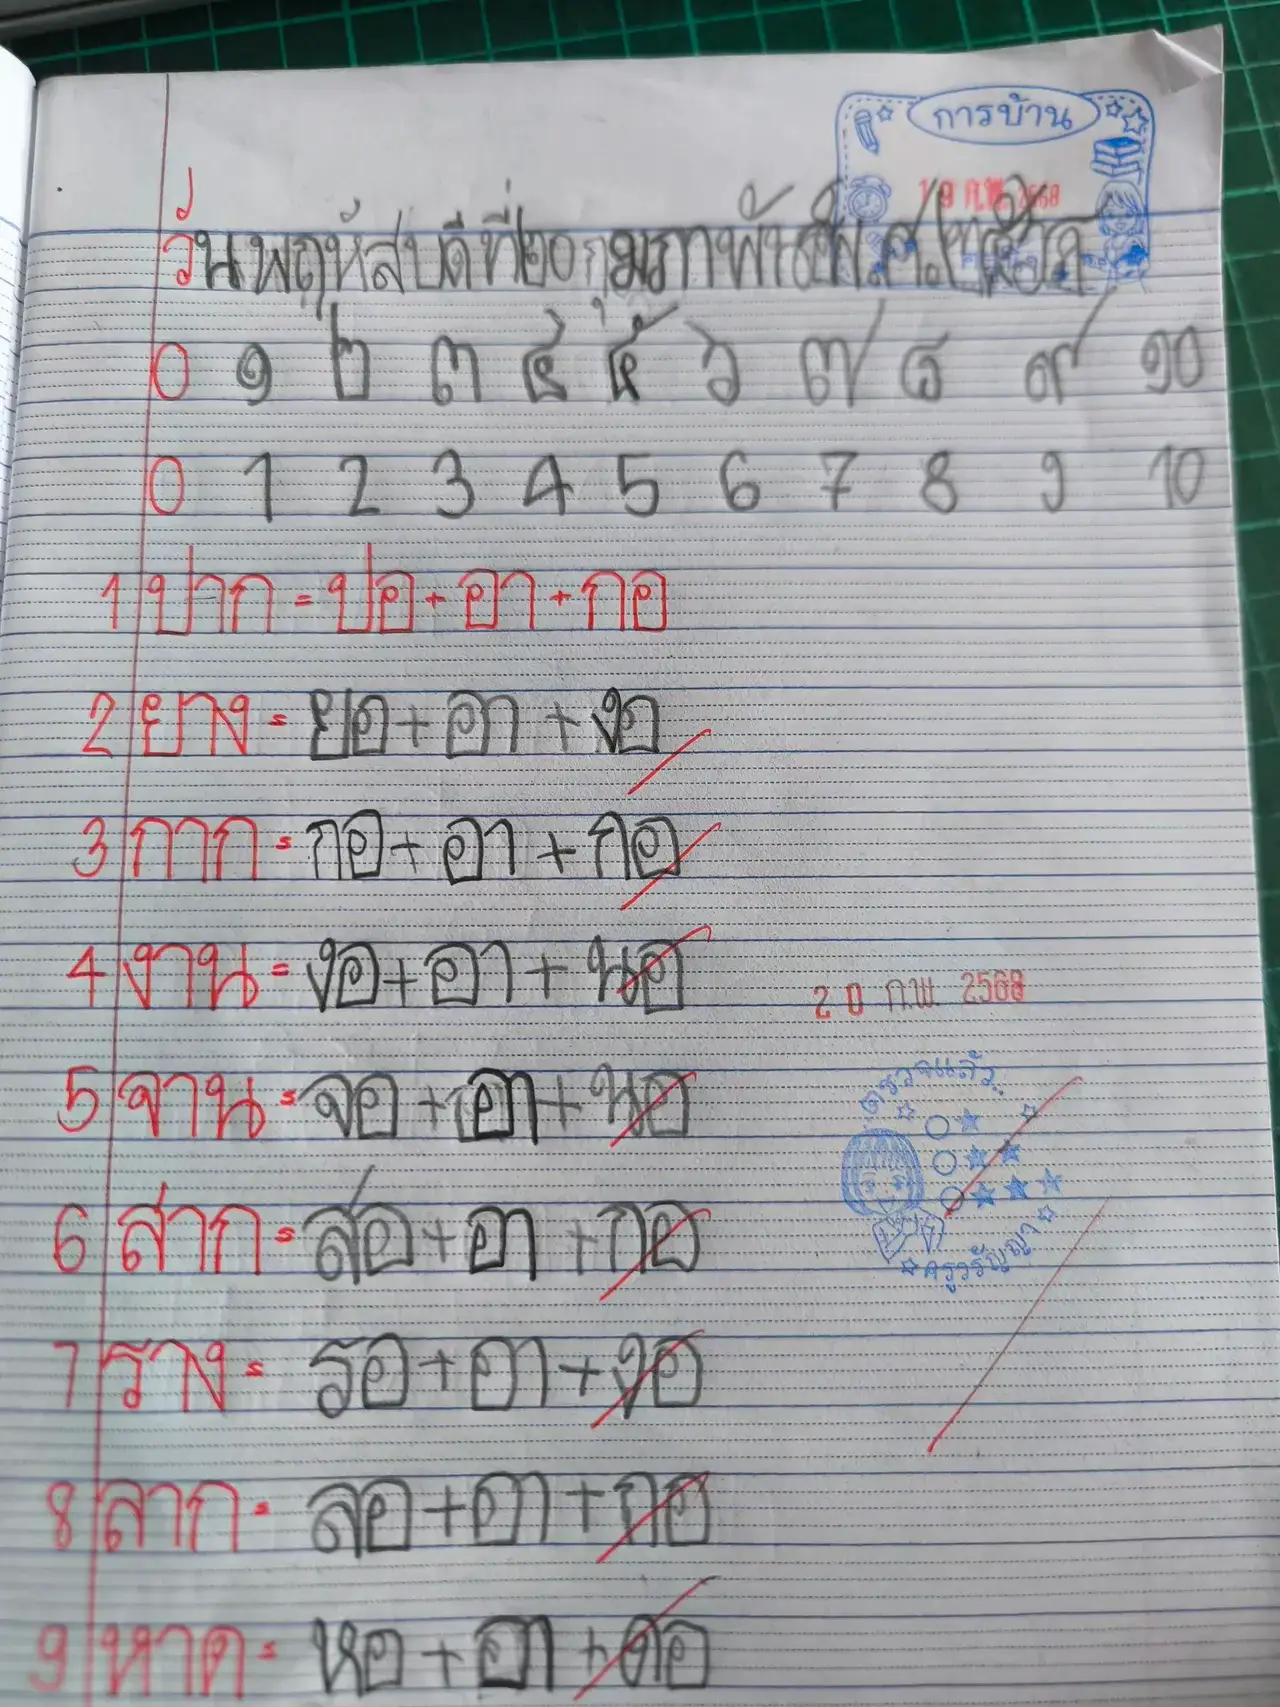 การบ้าน
19 ก.พ. 2568
วันพฤหัสบดีที่๒๐กุมภาพันธ์
0 ๑ ๒ ๓ ๔ ๕ ๖ ๗ ๘ ๙ ๑๐
0 1 2 3 4 5 6 7 8 9 10
1 ปาก = ปอ + อา + กอ
2 ยาง = ยอ + อา + งอ
3 กาก = กอ + อา + กอ
4 งาน = งอ + อา + นอ
20 ก.พ. 2568
5 จาน = จอ + อา + นอ
ตรวจแล้ว
6 สาก = สอ + อา + กอ
ครูวรัญญา
7 ราง = รอ + อา + งอ
8 ลาก = ลอ + อา + กอ
9 หาด = หอ + อา + ดอ